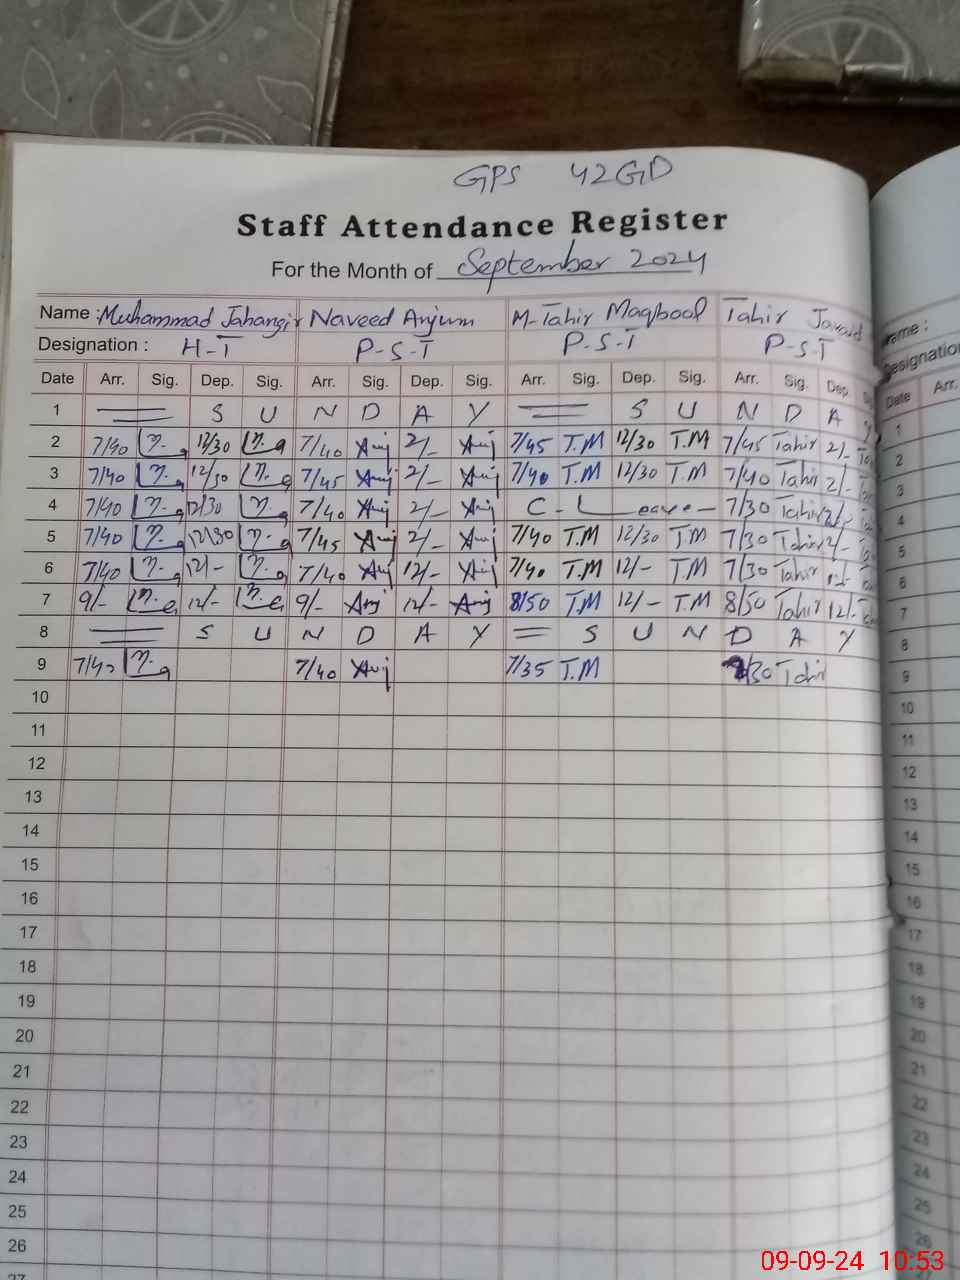 GPS 42GD
Staff Attendance Register
For the Month of September 2024
Name : Muhammad Jahangir Naveed Anjum M-Tahir Maqbool Tahir Javaid
Designation : H-T P-S-T P-S-T P-S-T
Date Arr. Sig. Dep. Sig. Arr. Sig. Dep. Sig. Arr. Sig. Dep. Sig. Arr. Sig. Dep.
1 S U N D A Y S U N D A Y
2 7/40 12/30 7/40 Anj 2/- Anj 7/45 T.M 12/30 T.M 7/45 Tahir 2/-
3 7/40 12/30 7/45 Anj 2/- Anj 7/40 T.M 12/30 T.M 7/40 Tahir 2/-
4 7/40 12/30 7/40 Anj 2/- Anj C - Leave - 7/30 Tahir 2/-
5 7/40 12/30 7/45 Anj 2/- Anj 7/40 T.M 12/30 T.M 7/30 Tahir 2/-
6 7/40 12/- 7/40 Anj 12/- Anj 7/40 T.M 12/- T.M 7/30 Tahir 12/-
7 9/- 12/- 9/- Anj 12/- Anj 8/50 T.M 12/- T.M 8/50 Tahir 12/-
8 S U N D A Y S U N D A Y
9 7/40 7/40 Anj 7/35 T.M 7/30 Tahir
10
11
12
13
14
15
16
17
18
19
20
21
22
23
24
25
26
27
Designation
Date Arr.
1
2
3
4
5
6
7
8
9
10
11
12
13
14
15
16
17
18
19
20
21
22
23
24
25
26
09-09-24 10:53